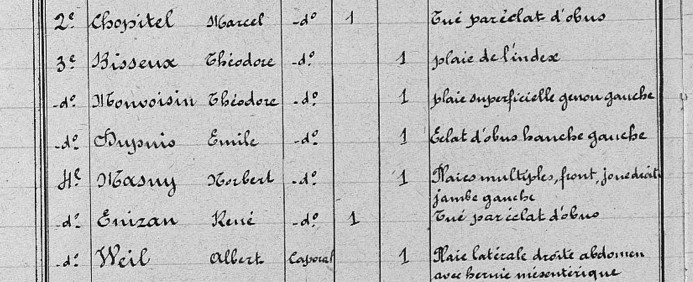 2e Chopitel Marcel -do- 1 Tué par éclat d'obus
3e Bisseux Théodore -do- 1 plaie de l'index
-do- Monvoisin Théodore -do- 1 plaie superficielle genou gauche
-do- Dupuis Emile -do- 1 Eclat d'obus hanche gauche
4e Masny Norbert -do- 1 Plaies multiples, front, joue droite
jambe gauche
-do- Enizan René -do- 1 Tué par éclat d'obus
-do- Weil Albert Caporal 1 Plaie latérale droite abdomen
avec hernie mésentérique